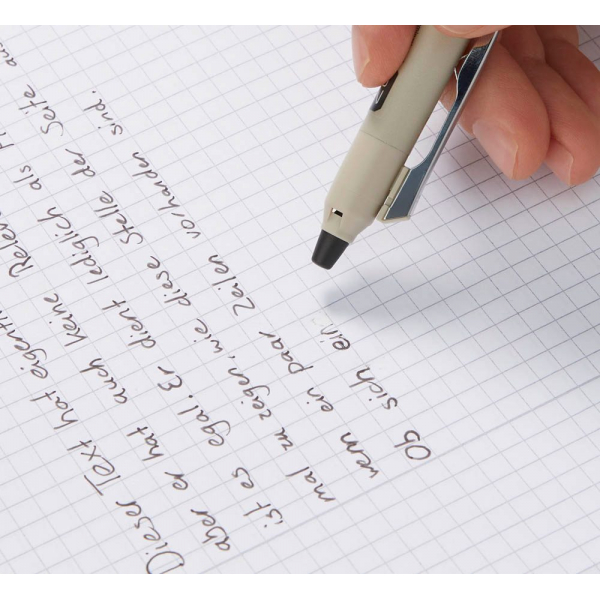 Dieser Text hat eigentl
aber er hat auch keine Relev
ist es egal. Er dient lediglich als
mal zu zeigen, wie diese Stelle der Seite aus
wenn ein paar Zeilen vorhanden sind.
Ob sich ein